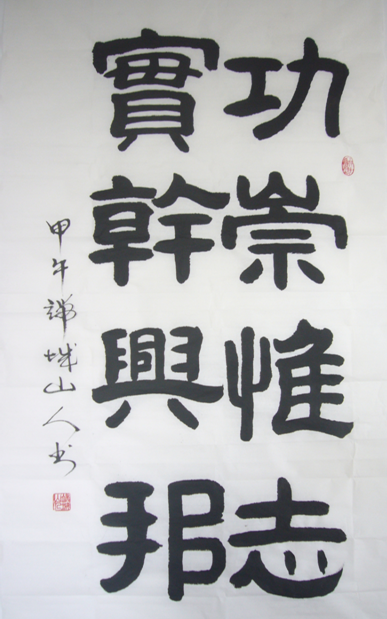 功崇惟志
實幹興邦
甲午 城山人书